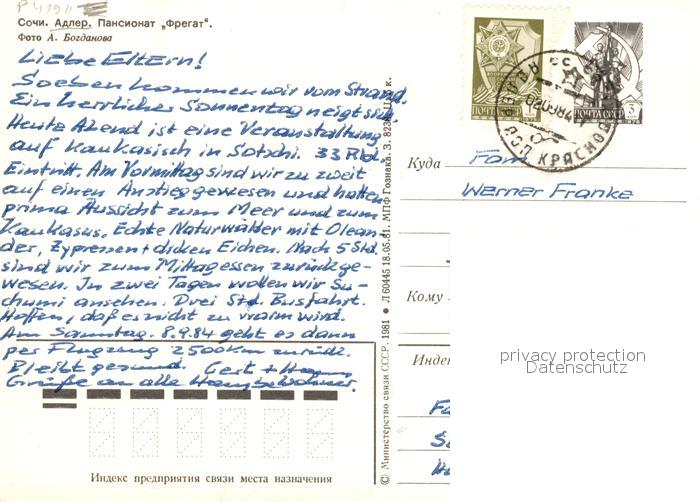 P 41911
Сочи. Адлер. Пансионат „Фрегат“.
Фото А. Богданова
Liebe Eltern!
Soeben kommen wir vom Strand.
Ein herrlicher Sonnentag neigt sich.
Heute Abend ist eine Veranstaltung
auf Kaukasisch in Sotschi. 33 Rbl.
Eintritt. Am Vormittag sind wir zu zweit
auf einen Anstieg gewesen und hatten
prima Aussicht zum Meer und zum
Kaukasus. Echte Naturwälder mit Olean-
der, Zypressen + dicken Eichen. Nach 5 Std.
sind wir zum Mittagessen zurückge-
wesen. In zwei Tagen wollen wir Su-
chumi ansehen. Drei Std. Busfahrt.
Hoffen, daß es nicht zu warm wird.
Am Samstag. 8.9.84 geht es dann
per Flugzeug 2500 km zurück.
Bleibt gesund. Gert +
Grüße an alle Hausbewohner.
Индекс предприятия связи места назначения
© Министерство связи СССР. 1981 • Л 60445 18.05.81. МПФ Гознака. З. 82 к.
ПОЧТА
ПОЧТА СССР
3
КРАСНОД
Куда
Fam
Werner Franke
Кому
Индек
Fa
privacy protection
Datenschutz